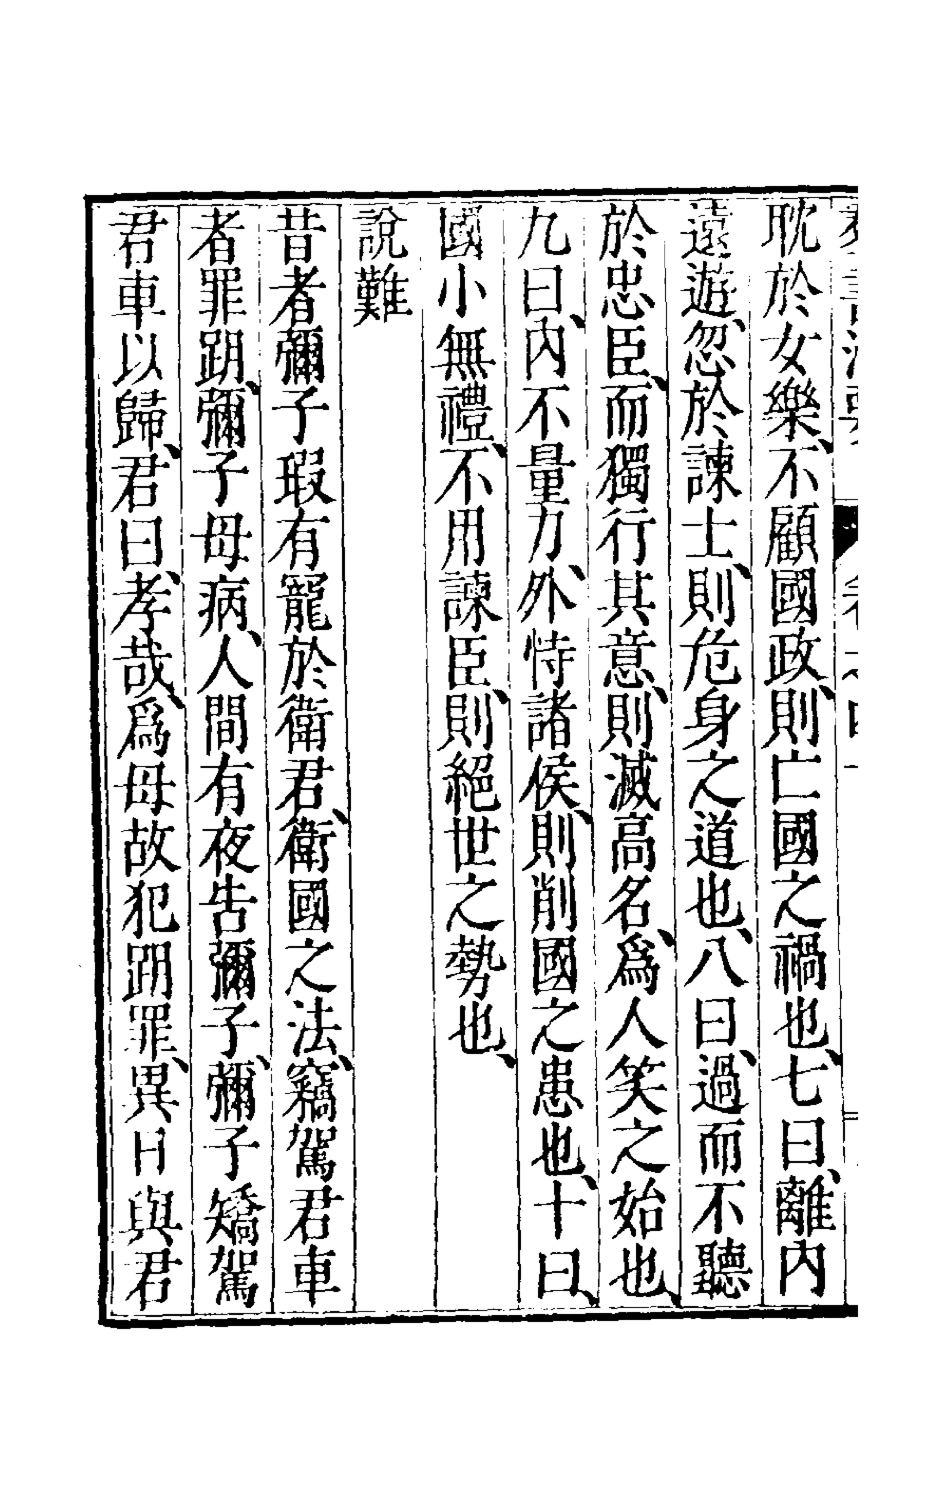 耽於女樂、不顧國政、則亡國之禍也、七曰、離內
遠遊、忽於諫士、則危身之道也、八曰、過而不聽
於忠臣、而獨行其意、則滅高名、爲人笑之始也、
九曰、內不量力、外恃諸侯、則削國之患也、十曰、
國小無禮、不用諫臣、則絕世之勢也、
說難
昔者彌子瑕有寵於衛君、衛國之法、竊駕君車
者罪跀、彌子母病、人間有夜告彌子、彌子矯駕
君車以歸、君曰、孝哉、爲母故犯跀罪、異日與君